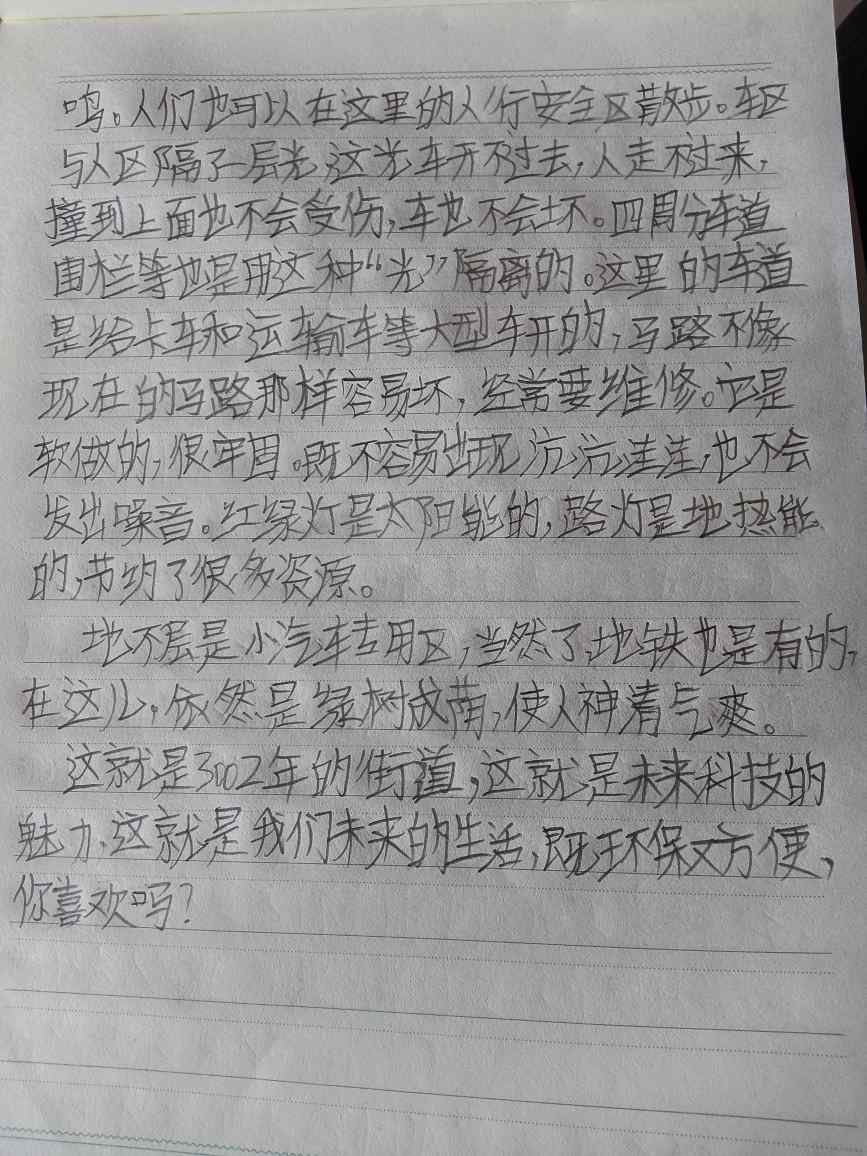 鸣。人们也可以在这里的人行安全区散步。车区
与人区隔了一层光,这光车开不过去,人走不过来,
撞到上面也不会受伤,车也不会坏。四周分车道
围栏等也是用这种“光”隔离的。这里的车道
是给卡车和运输车等大型车开的,马路不像
现在的马路那样容易坏,经常要维修。它是
软做的,很牢固。既不容易出现沆沆洼洼,也不会
发出噪音。红绿灯是太阳能的,路灯是地热能
的,节约了很多资源。
地下层是小汽车专用区,当然了,地铁也是有的,
在这儿,依然是绿树成荫,使人神清气爽。
这就是3002年的街道,这就是未来科技的
魅力,这就是我们未来的生活,既环保又方便,
你喜欢吗?